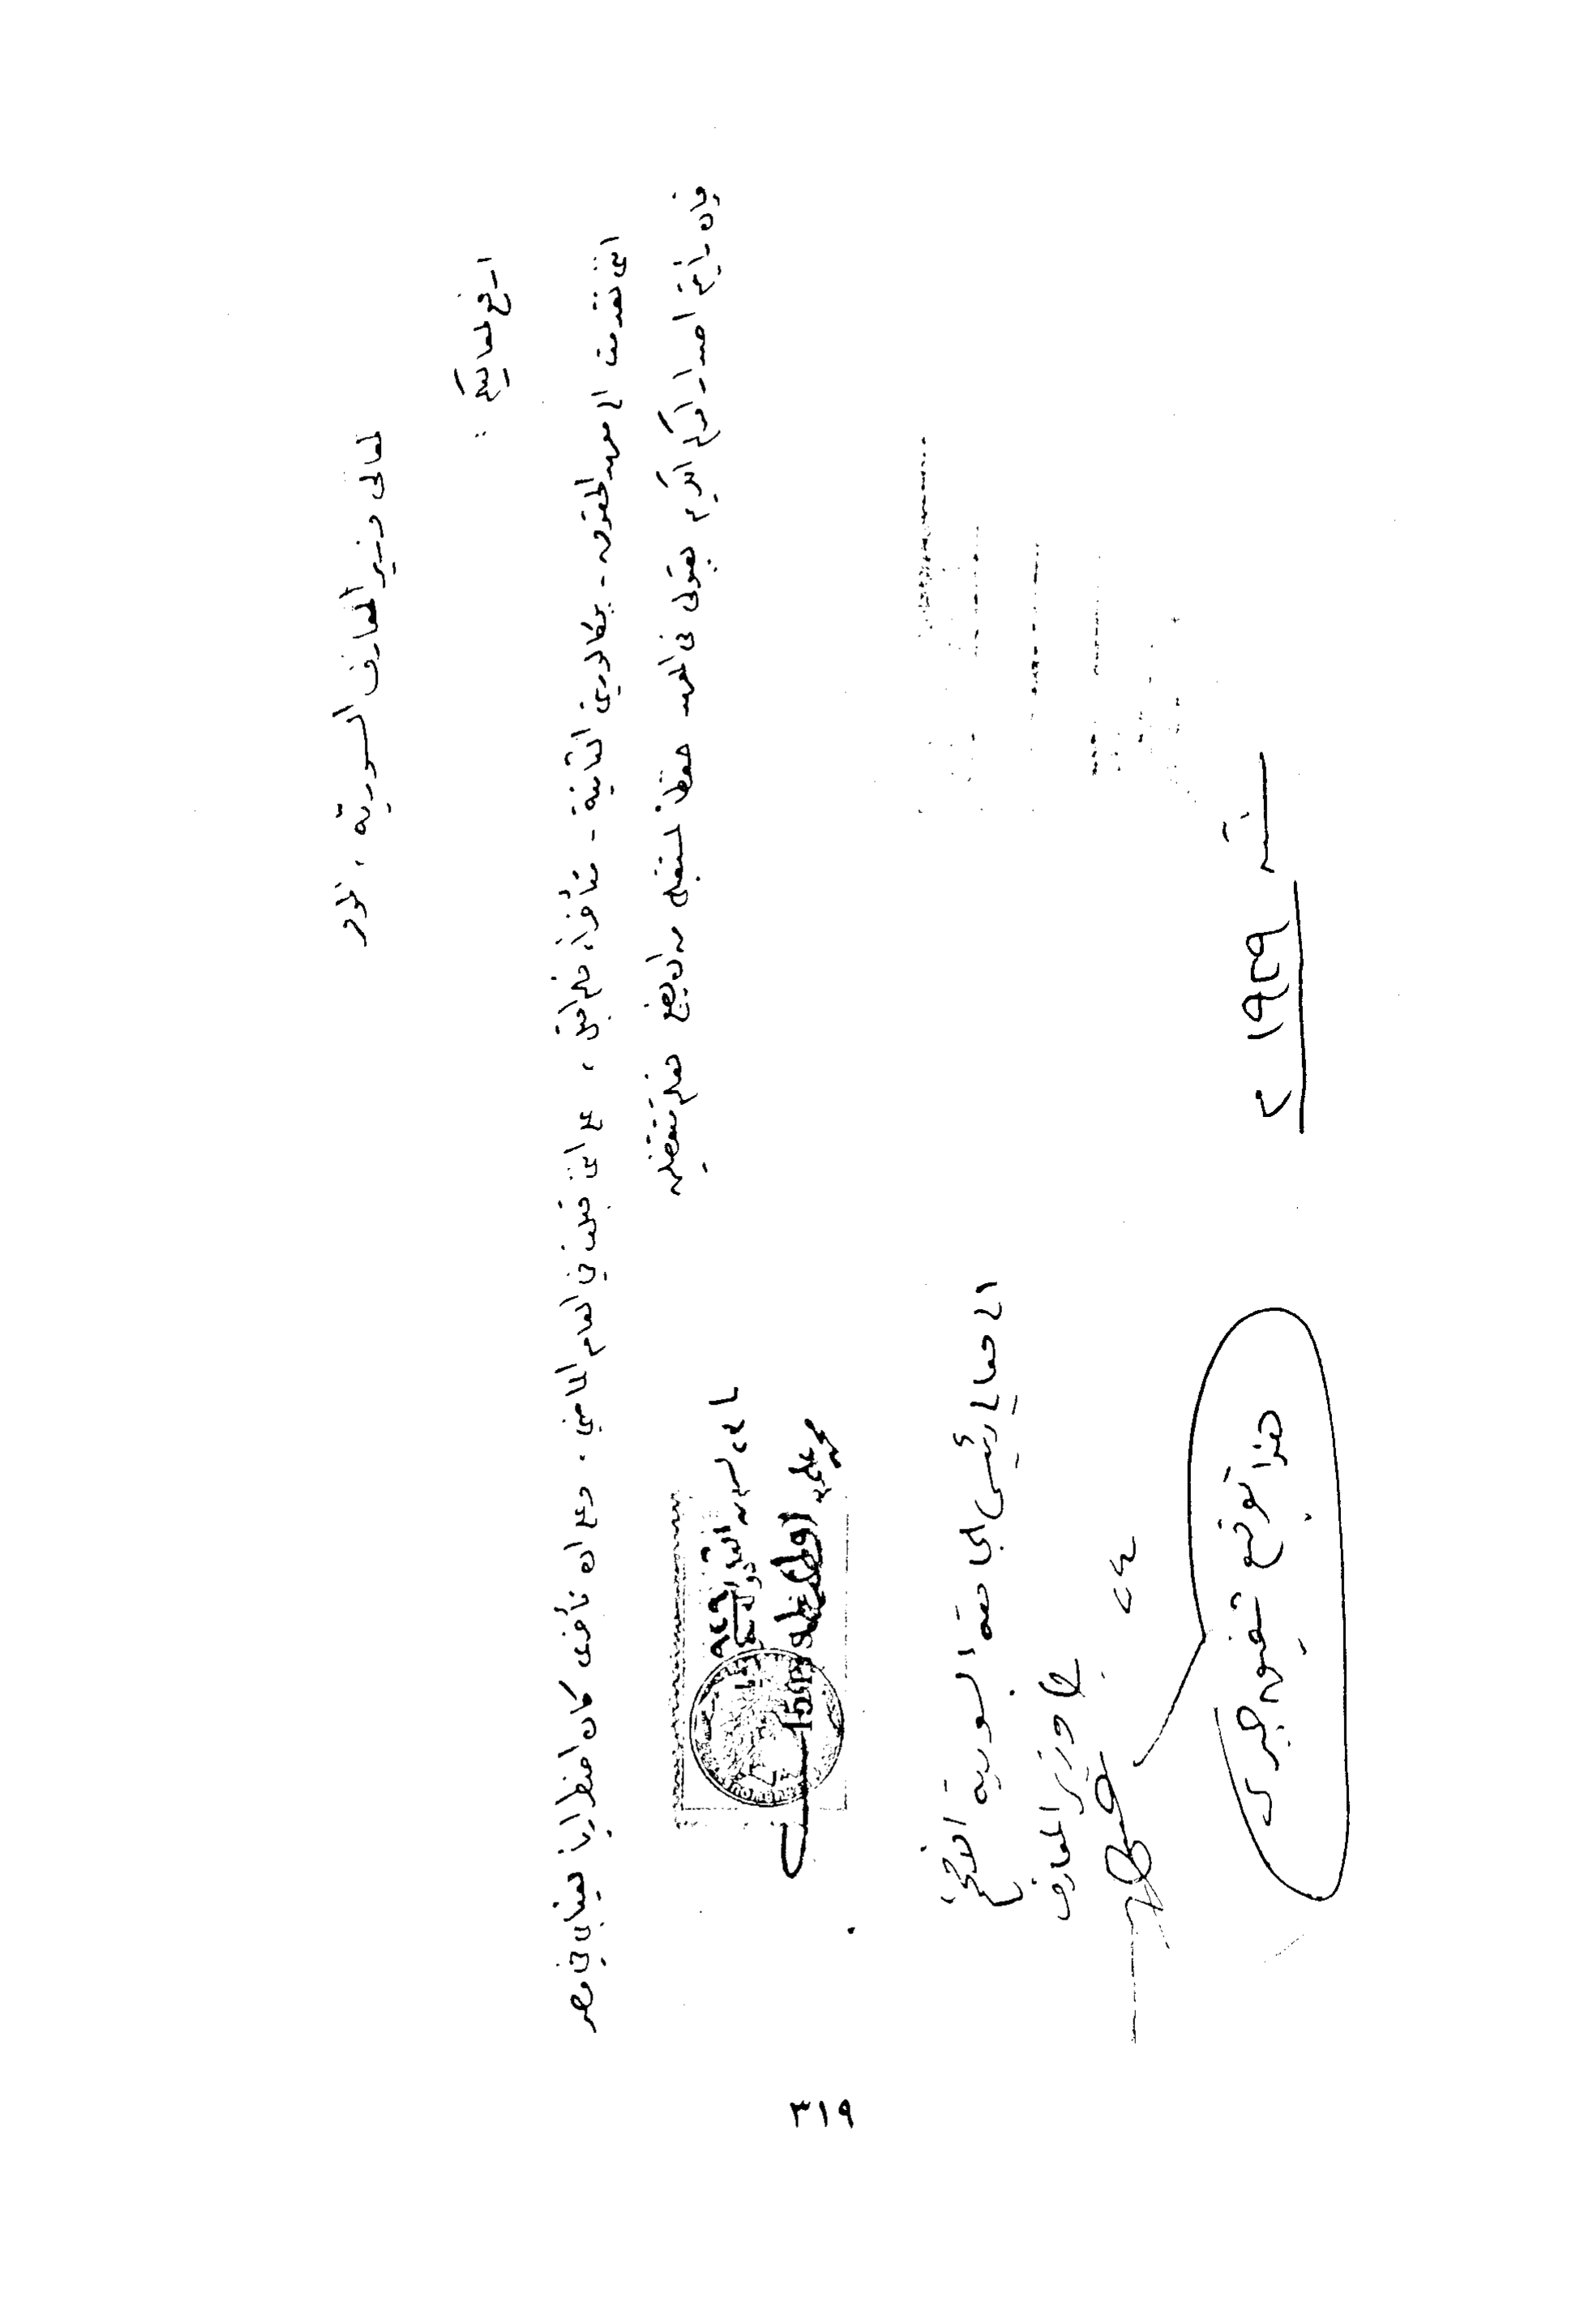 لمعالي وزير المعارف السورية، الموقر
ارفع لمعاليكم :
انني تقدمت الى معهد الحقوق - ببكالوريتي الثانية - متأخراً، فلم اقبل، على انني قبلت في العام الماضي. وعلى ان تأخري كان اضطرارياً لغيابي في مصر
فان رأيتم اصدار امركم الكريم بقبولي في المعهد حفظاً لمستقبلي من ان يضيع فعلتم متفضلين
الى معالي رئيس الجامعة السورية الافخم
وزير المعارف
هذا توقيع شفيق جبري
سنة ١٩٢٩ م
٣١٩